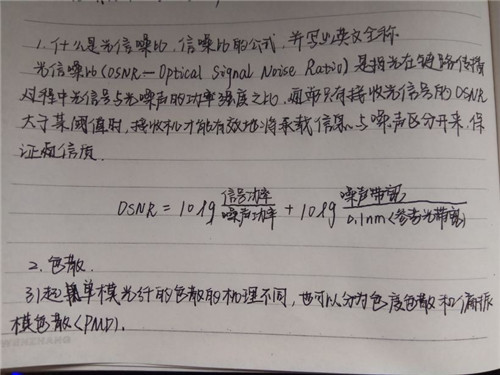 1. 什么是光信噪比,信噪比的公式,并写出英文全称
光信噪比(OSNR-Optical Signal Noise Ratio)是指光在链路传输
过程中光信号与光噪声的功率强度之比,通常只有接收光信号的OSNR
大于某阈值时,接收机才能有效地将承载信息与噪声区分开来,保
证通信质
OSNR = 10lg 信号功率/噪声功率 + 10lg 噪声带宽/0.1nm(参考光带宽)
2. 色散.
引起单模光纤的色散的机理不同,也可以分为色度色散和偏振
模色散(PMD).